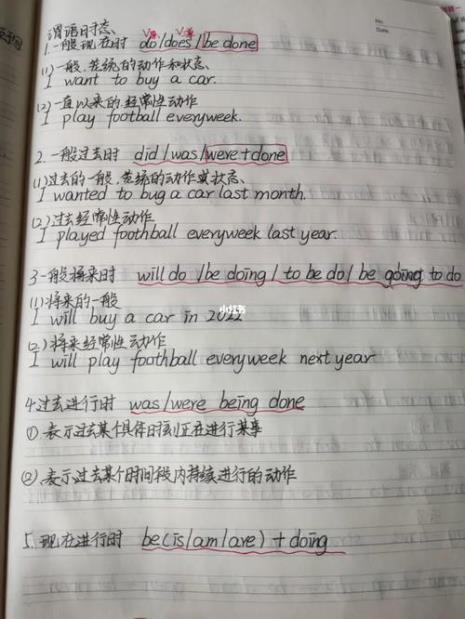 谓语时态、
V原 V三
1.一般现在时 do/does/be done
(1)一般、笼统的动作和状态、
I want to buy a car.
(2)一直以来的经常性动作
I play football everyweek.
2.一般过去时 did/was/were+done
(1)过去的一般、笼统的动作或状态、
I wanted to bug a car last month.
(2)过去经常性动作
I played foothball everyweek last year.
3一般将来时 will do /be doing / to be do / be going to do
(1)将来的一般
I will buy a car in 2022
小红书
(2)将来经常性动作
I will play foothball everyweek next year
4过去进行时 was/were being done
①表示过去某个具体时刻正在进行某事
②表示过去某个时间段内持续进行的动作
5.现在进行时 be(is/am/are)+doing
No.
Date